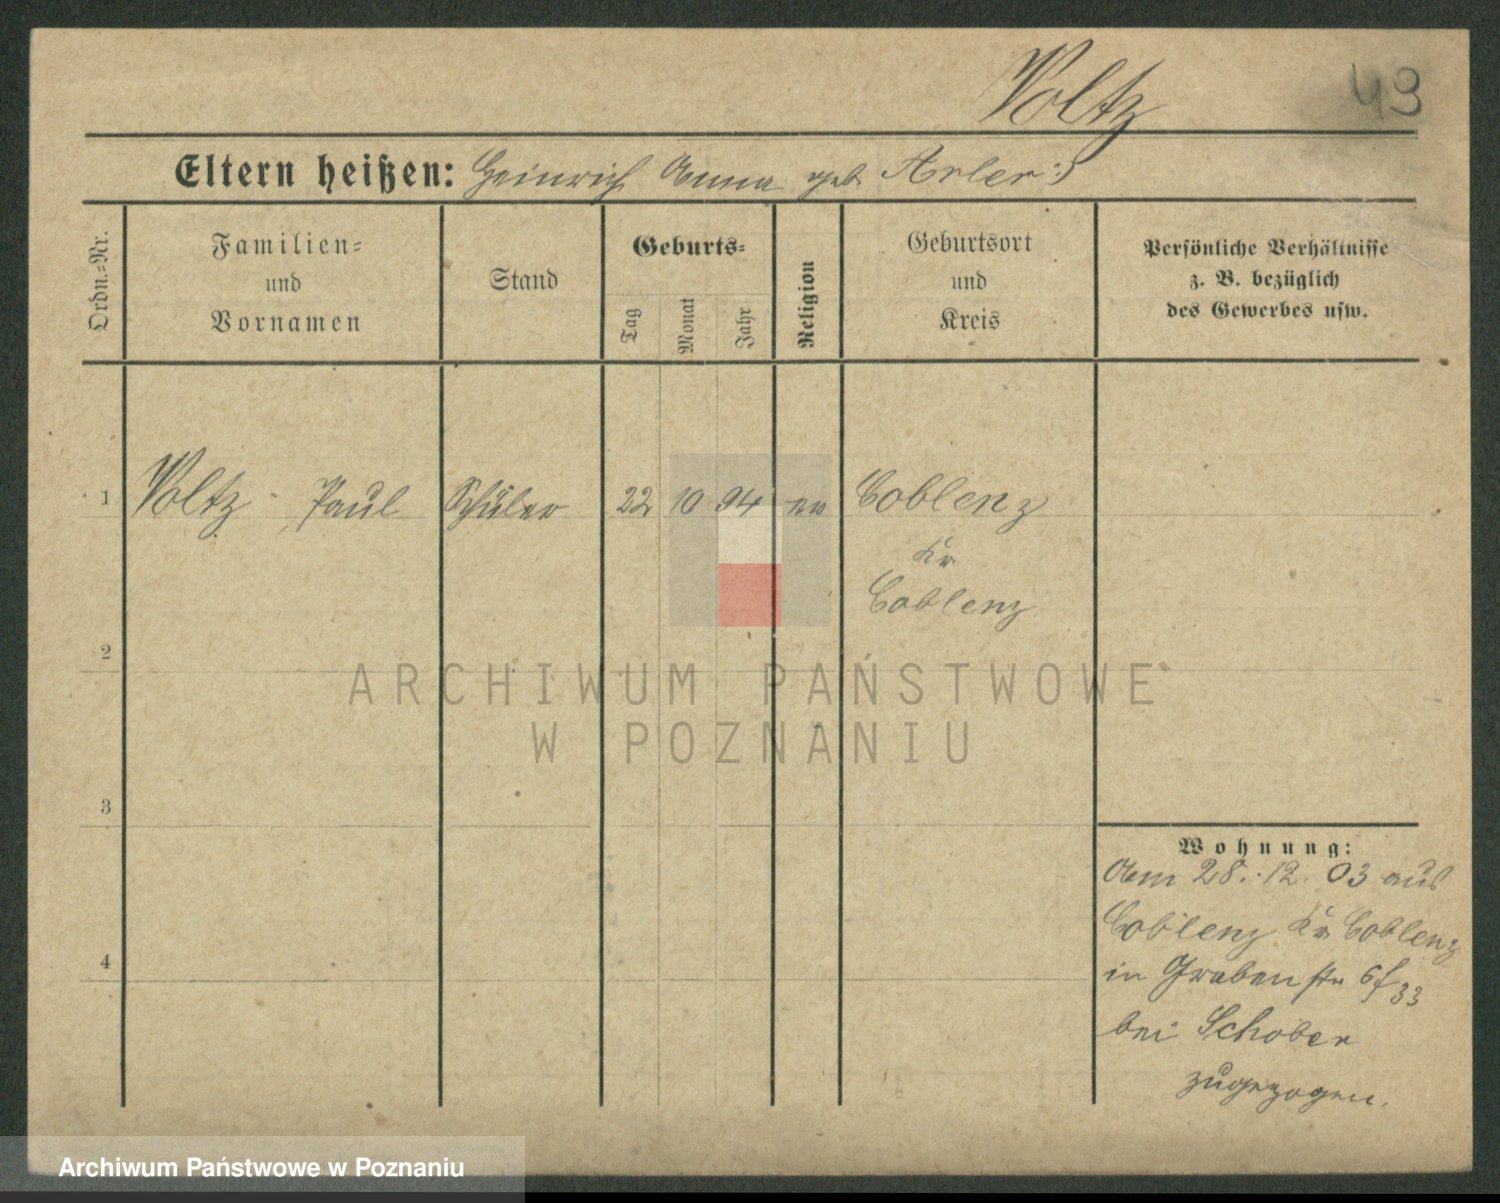 Voltz 43
Eltern heißen: Heinrich Anna geb Arler :)
Ordn.=Nr.
Familien=
und
Vornamen
Stand
Geburts=
Tag
Monat
Jahr
Religion
Geburtsort
und
Kreis
Persönliche Verhältnisse
z. B. bezüglich
des Gewerbes usw.
1 Voltz Paul Schüler 22 10 94 ev Coblenz
Kr
Coblenz
2
3
4
Wohnung:
Am 28. 12. 03 aus
Coblenz Kr Coblenz
in Grabenstr 6 f 33
bei Schober
zugezogen.
ARCHIWUM PAŃSTWOWE
W POZNANIU
Archiwum Państwowe w Poznaniu